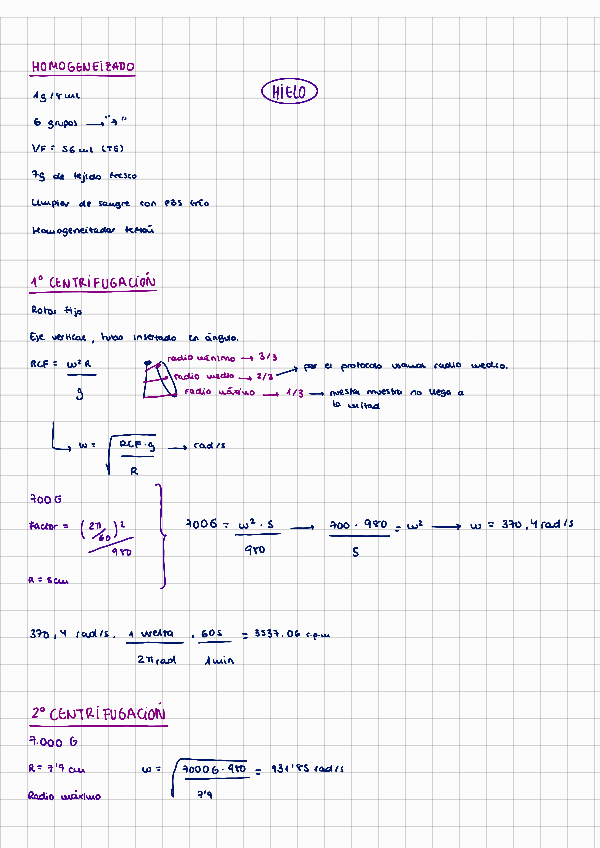 HOMOGENEIZADO
HIELO
1g/8 mL
6 grupos → "7"
VF = 56 mL (TE)
7g de tejido fresco
Limpiar de sangre con PBS frío
Homogeneizador
1º CENTRIFUGACIÓN
Rotor fijo
Eje vertical, tubo insertado en ángulo.
RCF = ω² R / g
radio mínimo → 3/3
radio medio → 2/3 → por el protocolo usamos radio medio.
radio máximo → 1/3 → nuestra muestra no llega a la mitad
ω = √(RCF·g / R) → rad/s
700G
Factor = (2π/60)² / 980
R = 5cm
700G = ω² · 5 / 980 → 700 · 980 / 5 = ω² → ω = 370,4 rad/s
370,4 rad/s · 1 vuelta / 2π rad · 60s / 1 min = 3537.06 r.p.m
2º CENTRIFUGACIÓN
7.000 G
R = 7'9 cm
ω = √(7000G · 980 / 7'9) = 931'85 rad/s
Radio máximo